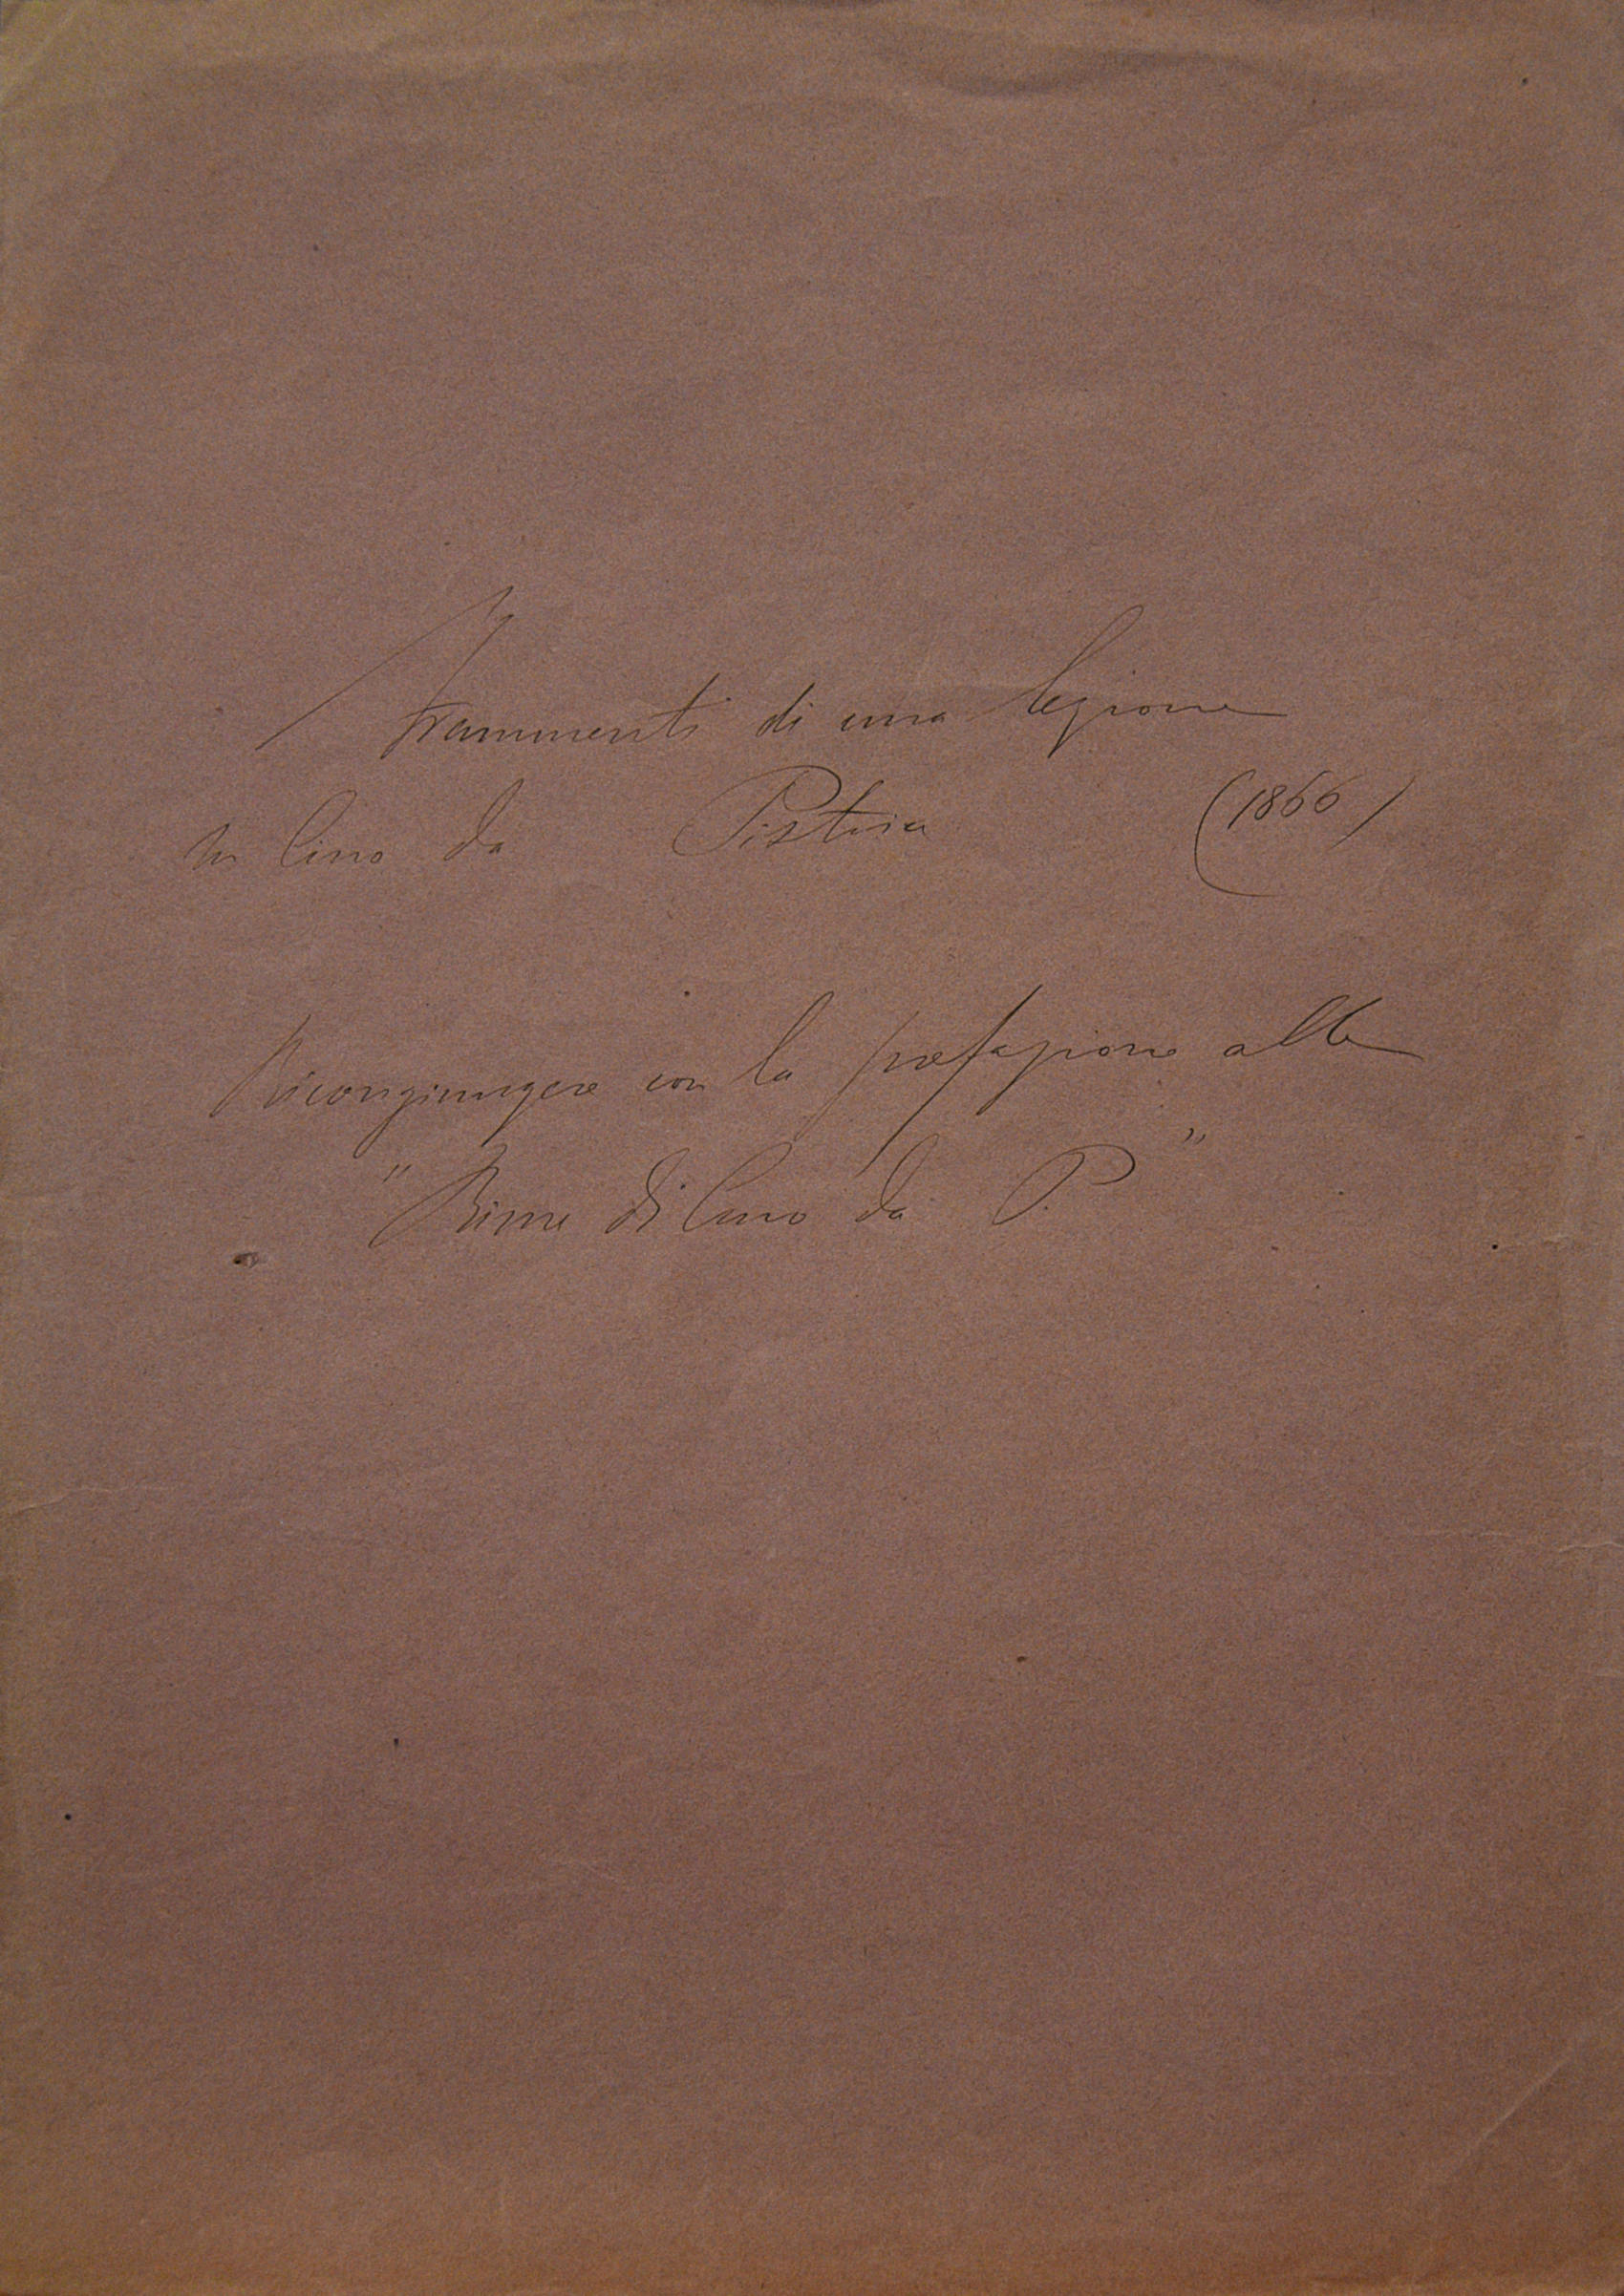 Frammenti di una lezione
su Cino da Pistoia (1866)
Ricongiungere con la prefazione alle
"Rime di Cino da P."